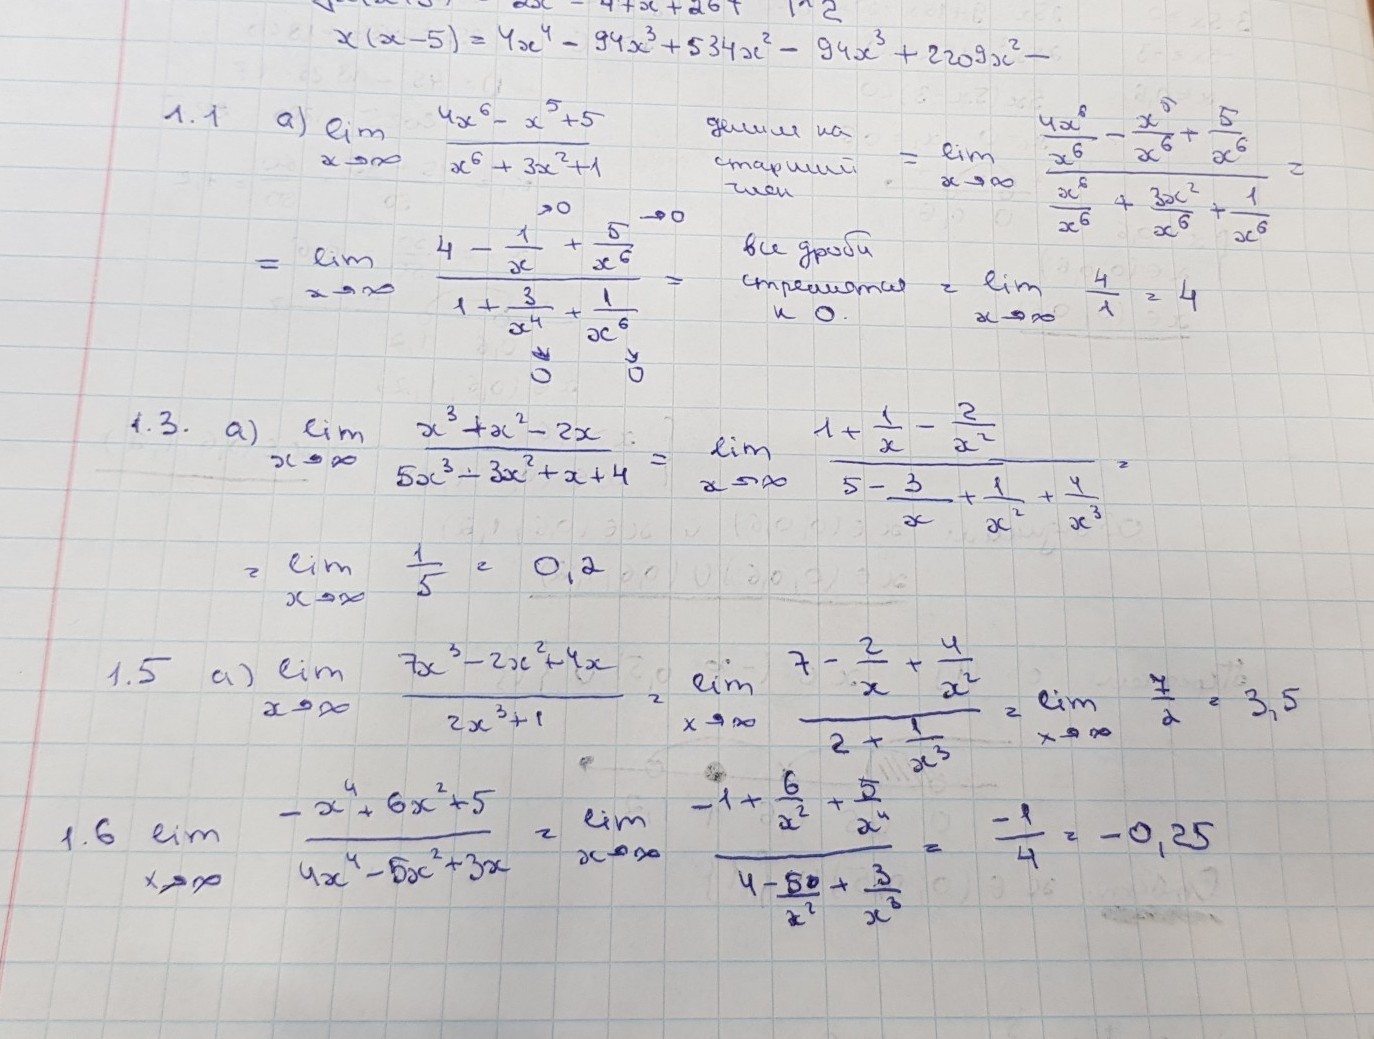 x(x-5) = 4x⁴ - 94x³ + 534x² - 94x³ + 2209x² -
1.1 a) lim x→∞ (4x⁶ - x⁵ + 5)/(x⁶ + 3x² + 1) делим на старший член = lim x→∞ (4x⁶/x⁶ - x⁵/x⁶ + 5/x⁶)/(x⁶/x⁶ + 3x²/x⁶ + 1/x⁶) =
= lim x→∞ (4 - 1/x →0 + 5/x⁶ →0)/(1 + 3/x⁴ →0 + 1/x⁶ →0) = все дроби стремятся к 0. = lim x→∞ 4/1 = 4
1.3. a) lim x→∞ (x³ + x² - 2x)/(5x³ - 3x² + x + 4) = lim x→∞ (1 + 1/x - 2/x²)/(5 - 3/x + 1/x² + 4/x³) =
= lim x→∞ 1/5 = 0,2
1.5 a) lim x→∞ (7x³ - 2x² + 4x)/(2x³ + 1) = lim x→∞ (7 - 2/x + 4/x²)/(2 + 1/x³) = lim x→∞ 7/2 = 3,5
1.6 lim x→∞ (-x⁴ + 6x² + 5)/(4x⁴ - 5x² + 3x) = lim x→∞ (-1 + 6/x² + 5/x⁴)/(4 - 5/x² + 3/x³) = -1/4 = -0,25